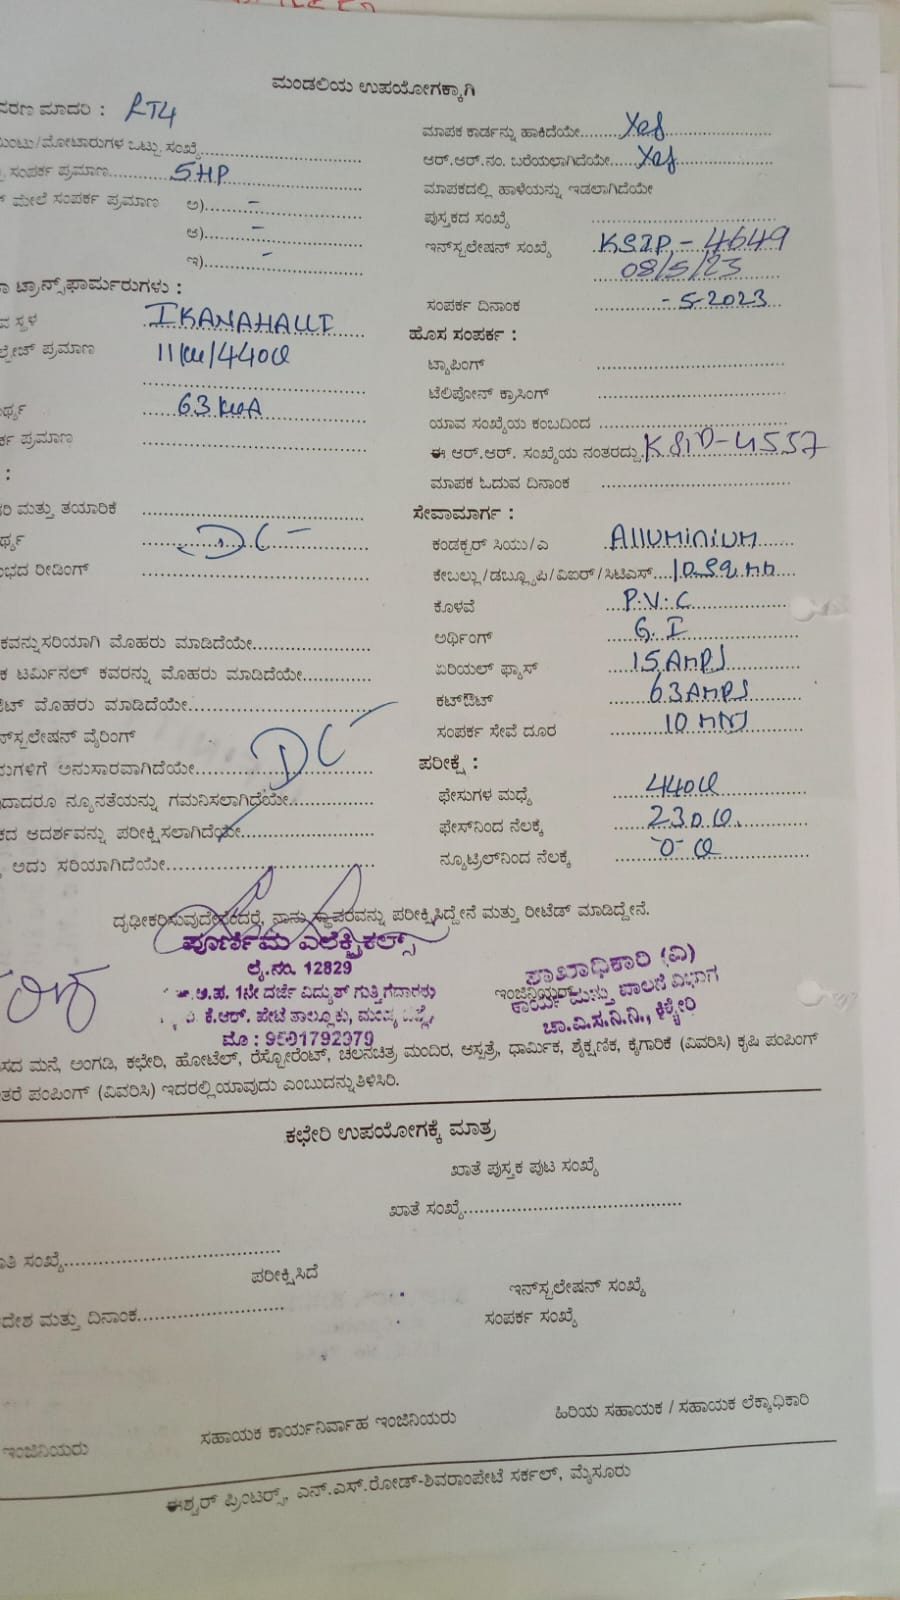 ಮಂಡಲಿಯ ಉಪಯೋಗಕ್ಕಾಗಿ
ವರಣ ಮಾದರಿ : LT4
ಯಿಂಟು/ಮೋಟಾರುಗಳ ಒಟ್ಟು ಸಂಖ್ಯೆ
ಸಂಪರ್ಕ ಪ್ರಮಾಣ 5HP
ಮೇಲೆ ಸಂಪರ್ಕ ಪ್ರಮಾಣ ಅ) -
ಆ) -
ಇ) -
ಟ್ರಾನ್ಸ್‌ಫಾರ್ಮರುಗಳು :
ವ ಸ್ಥಳ IKANAHALLI
ಲ್ಟೇಜ್ ಪ್ರಮಾಣ 11kv/440v
ರ್ಥ್ಯ 63 kvA
ರ್ಕ ಪ್ರಮಾಣ
:
ರಿ ಮತ್ತು ತಯಾರಿಕೆ
ರ್ಥ್ಯ DC
ಭದ ರೀಡಿಂಗ್
ಕವನ್ನುಸರಿಯಾಗಿ ಮೊಹರು ಮಾಡಿದೆಯೇ
ಕ ಟರ್ಮಿನಲ್ ಕವರನ್ನು ಮೊಹರು ಮಾಡಿದೆಯೇ
ಟ್ ಮೊಹರು ಮಾಡಿದೆಯೇ
ನ್‌ಸ್ಟಲೇಷನ್ ವೈರಿಂಗ್
ಮಗಳಿಗೆ ಅನುಸಾರವಾಗಿದೆಯೇ DC
ದಾದರೂ ನ್ಯೂನತೆಯನ್ನು ಗಮನಿಸಲಾಗಿದೆಯೇ
ಕದ ಆದರ್ಶವನ್ನು ಪರೀಕ್ಷಿಸಲಾಗಿದೆಯೇ
ಅದು ಸರಿಯಾಗಿದೆಯೇ
ಮಾಪಕ ಕಾರ್ಡನ್ನು ಹಾಕಿದೆಯೇ Yes
ಆರ್.ಆರ್.ನಂ. ಬರೆಯಲಾಗಿದೆಯೇ Yes
ಮಾಪಕದಲ್ಲಿ ಹಾಳೆಯನ್ನು ಇಡಲಾಗಿದೆಯೇ
ಪುಸ್ತಕದ ಸಂಖ್ಯೆ
ಇನ್‌ಸ್ಟಲೇಷನ್ ಸಂಖ್ಯೆ KSIP - 4649
08/5/23
ಸಂಪರ್ಕ ದಿನಾಂಕ - 5-2023
ಹೊಸ ಸಂಪರ್ಕ :
ಟ್ಯಾಪಿಂಗ್
ಟೆಲಿಫೋನ್ ಕ್ರಾಸಿಂಗ್
ಯಾವ ಸಂಖ್ಯೆಯ ಕಂಬದಿಂದ
ಈ ಆರ್.ಆರ್. ಸಂಖ್ಯೆಯ ನಂತರದ್ದು KSIP-4557
ಮಾಪಕ ಓದುವ ದಿನಾಂಕ
ಸೇವಾಮಾರ್ಗ :
ಕಂಡಕ್ಟರ್ ಸಿಯು/ಎ Alluminium
ಕೇಬಲ್ಲು/ಡಬ್ಲ್ಯೂಪಿ/ವಿಐರ್/ಸಿಟಿಎಸ್ 10 sq mm
ಕೊಳವೆ P.V.C
ಅರ್ಥಿಂಗ್ G.I
ಏರಿಯಲ್ ಫ್ಯೂಸ್ 15 AMPS
ಕಟ್‌ಔಟ್ 63 AMPS
ಸಂಪರ್ಕ ಸೇವೆ ದೂರ 10 MNS
ಪರೀಕ್ಷೆ :
ಫೇಸುಗಳ ಮಧ್ಯೆ 440v
ಫೇಸ್‌ನಿಂದ ನೆಲಕ್ಕೆ 230 v.
ನ್ಯೂಟ್ರಲ್‌ನಿಂದ ನೆಲಕ್ಕೆ 0 v
ದೃಢೀಕರಿಸುವುದೇನೆಂದರೆ, ನಾನು ಸ್ಥಾವರವನ್ನು ಪರೀಕ್ಷಿಸಿದ್ದೇನೆ ಮತ್ತು ರೀಟೆಡ್ ಮಾಡಿದ್ದೇನೆ.
ಪೂರ್ಣಿಮ ಎಲೆಕ್ಟ್ರಿಕಲ್ಸ್
ಲೈ.ನಂ. 12829
ಅ.ಹ. 1ನೇ ದರ್ಜೆ ವಿದ್ಯುತ್ ಗುತ್ತಿಗೆದಾರರು
ಕೆ.ಆರ್. ಪೇಟೆ ತಾಲ್ಲೂಕು, ಮಂಡ್ಯ ಜಿಲ್ಲೆ,
ಮೊ : 9591792979
ಶಾಖಾಧಿಕಾರಿ (ವಿ)
ಇಂಜಿನಿಯರ್
ಕಾರ್ಯ ಮತ್ತು ಪಾಲನೆ ವಿಭಾಗ
ಚಾ.ವಿ.ಸ.ನಿ.ನಿ., ಕಿಕ್ಕೇರಿ
ಸದ ಮನೆ, ಅಂಗಡಿ, ಕಛೇರಿ, ಹೋಟೆಲ್, ರೆಸ್ಟೋರೆಂಟ್, ಚಲನಚಿತ್ರ ಮಂದಿರ, ಆಸ್ಪತ್ರೆ, ಧಾರ್ಮಿಕ, ಶೈಕ್ಷಣಿಕ, ಕೈಗಾರಿಕೆ (ವಿವರಿಸಿ) ಕೃಷಿ ಪಂಪಿಂಗ್
ತರೆ ಪಂಪಿಂಗ್ (ವಿವರಿಸಿ) ಇದರಲ್ಲಿ ಯಾವುದು ಎಂಬುದನ್ನು ತಿಳಿಸಿರಿ.
ಕಛೇರಿ ಉಪಯೋಗಕ್ಕೆ ಮಾತ್ರ
ಖಾತೆ ಪುಸ್ತಕ ಪುಟ ಸಂಖ್ಯೆ
ಖಾತೆ ಸಂಖ್ಯೆ
ತಿ ಸಂಖ್ಯೆ
ಪರೀಕ್ಷಿಸಿದೆ
ಇನ್‌ಸ್ಟಲೇಷನ್ ಸಂಖ್ಯೆ
ದೇಶ ಮತ್ತು ದಿನಾಂಕ
ಸಂಪರ್ಕ ಸಂಖ್ಯೆ
ಇಂಜಿನಿಯರು
ಸಹಾಯಕ ಕಾರ್ಯನಿರ್ವಾಹ ಇಂಜಿನಿಯರು
ಹಿರಿಯ ಸಹಾಯಕ / ಸಹಾಯಕ ಲೆಕ್ಕಾಧಿಕಾರಿ
ಈಶ್ವರ್ ಪ್ರಿಂಟರ್ಸ್, ಎನ್.ಎಸ್.ರೋಡ್-ಶಿವರಾಂಪೇಟೆ ಸರ್ಕಲ್, ಮೈಸೂರು